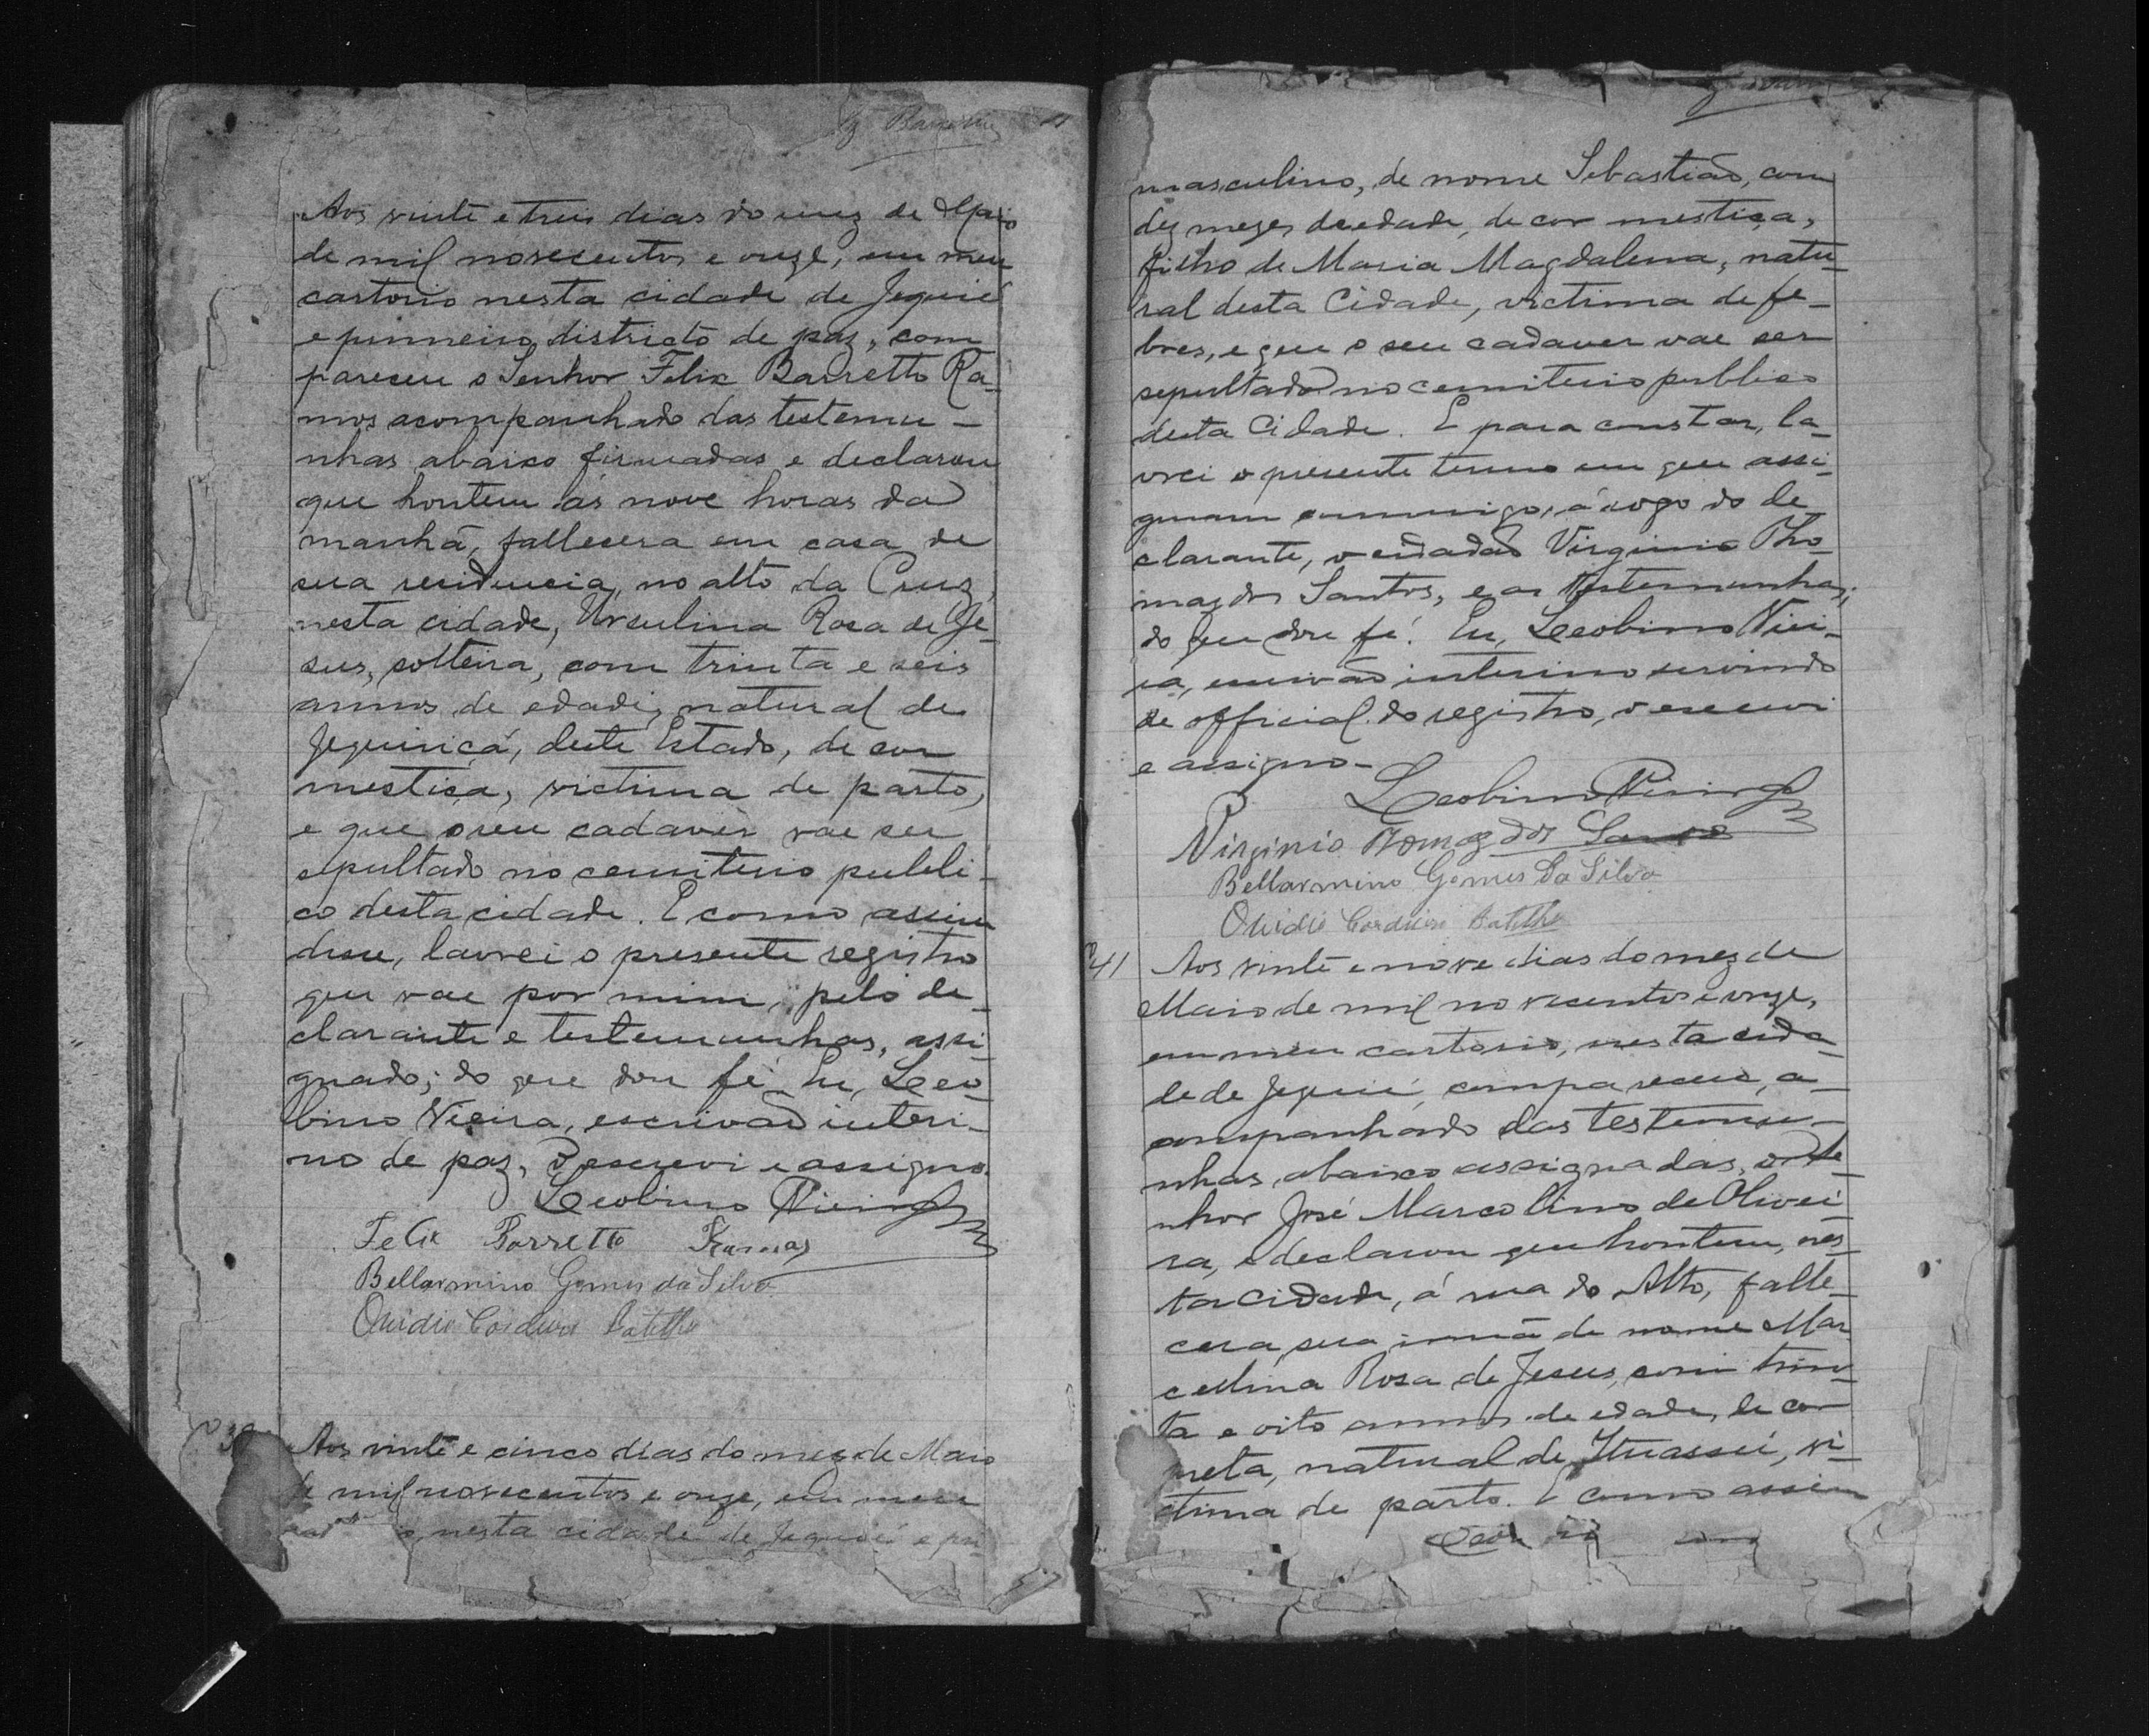 Aos vinte e treis dias do mez de Maio
de mil novecentos e onze, em meu
cartorio nesta cidade de Jequié
e primeiro districto de paz, com
pareceu o Senhor Felix Barretto Ra-
mos acompanhado das testemu-
nhas abaixo firmadas e declarou
que hontem ás nove horas da
manhã, fallecera em casa de
sua residencia, no alto da Cruz,
nesta cidade, Ursulina Rosa de Je-
sus, solteira, com trinta e seis
annos de edade, natural de
Jequiriçá, deste Estado, de cor
mestiça, victima de parto,
e que o seu cadaver vae ser
sepultado no cemiterio publi-
co desta cidade. E como assim
disse, lavrei o presente registro
que vae por mim, pelo de-
clarante e testemunhas, assi-
gnado; do que dou fé. Eu, Leo-
bino Vieira, escrivão interi-
no de paz, o escrevi e assigno.
Leobino Vieira
Felix Barretto Ramos
Bellarmino Gomes da Silva
Ouidio Cordeiro Botelho
Aos vinte e cinco dias do mez de Maio
de mil novecentos e onze, em meu
nesta cidade de Jequié e pri-
masculino, de nome Sebastião, com
dez mezes de edade, de cor mestiça,
filho de Maria Magdalena, natu-
ral desta Cidade, victima de fe-
bres, e que o seu cadaver vae ser
sepultado no cemiterio publico
desta Cidade. E para constar, la-
vrei o presente termo em que assi-
gnam commigo, á rogo do de
clarante, o cidadão Virginio Tho-
maz dos Santos, e as testemunhas;
do que dou fé. Eu, Leobino Viei-
ra, escrivão interino servindo
de official do registro, o escrevi
e assigno-
Leobino Vieira
Virginio Tomaz dos Santos
Bellarmino Gomes da Silva
Ouidio Cordeiro Botelho
41 Aos vinte e nove dias do mez de
Maio de mil novecentos e onze,
em meu cartorio, nesta cida-
de de Jequié, compareceu, a-
companhado das testemu-
nhas abaixo assignadas, o Se-
nhor José Marcolino de Olivei
ra, e declarou que hontem, nes-
ta Cidade, á rua do Alto, falle-
cera sua irmã de nome Mar
cellina Rosa de Jesus, com trin-
ta e oito annos de edade, de cor
preta, natural de Ituassú, vi-
ctima de parto. E como assim